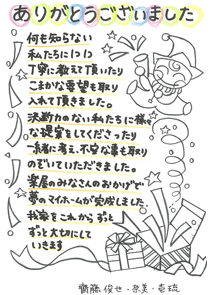 ありがとうございました
何も知らない
私たちに1つ1つ
丁寧に教えて頂いたり
こまかな要望も取り
入れて頂きました。
決断力のない私たちに様々
な提案をしてくださったり
一緒に考え、不安な事も取り
のぞいていただきました。
楽居のみなさんのおかげで
夢のマイホームが完成しました。
我家をこれから ずっと
ずっと大切にして
いきます
齋藤 俊也・奈美・壱琉